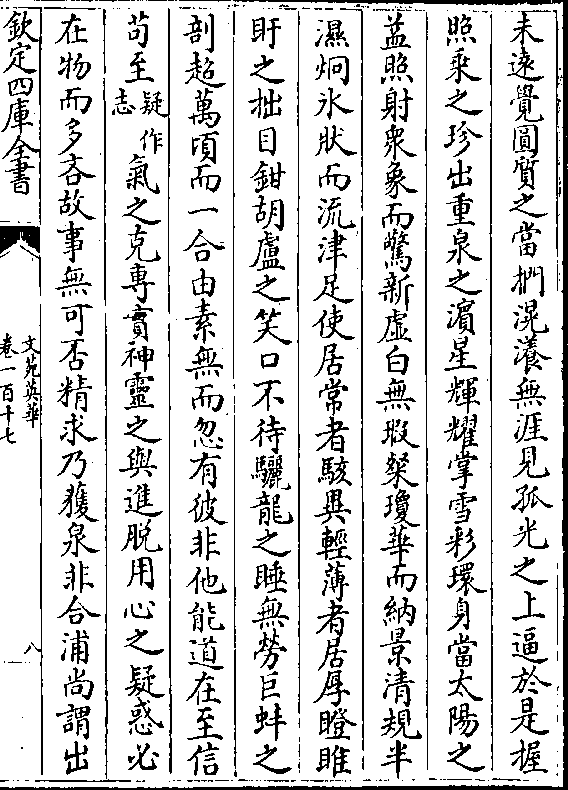 未遠覺圓質之當捫滉瀁無涯見孤光之上逼於是握
照乘之珍出重泉之濵星輝耀掌雪彩環身當太陽之
益照射衆象而驚新虚白無瑕粲瓊華而納景清規半
濕炯氷狀而流津足使居常者駭異輕薄者居厚瞪睢
盱之拙目鉗胡盧之笑口不待驪龍之睡無勞巨蚌之
剖超萬頃而一合由素無而忽有彼非他能道在至信
苟至疑作志氣之克專實神靈之與進脱用心之疑惑必
在物而多吝故事無可否精求乃獲泉非合浦尚謂出
欽定四庫全書
文苑英華
卷一百十七
八